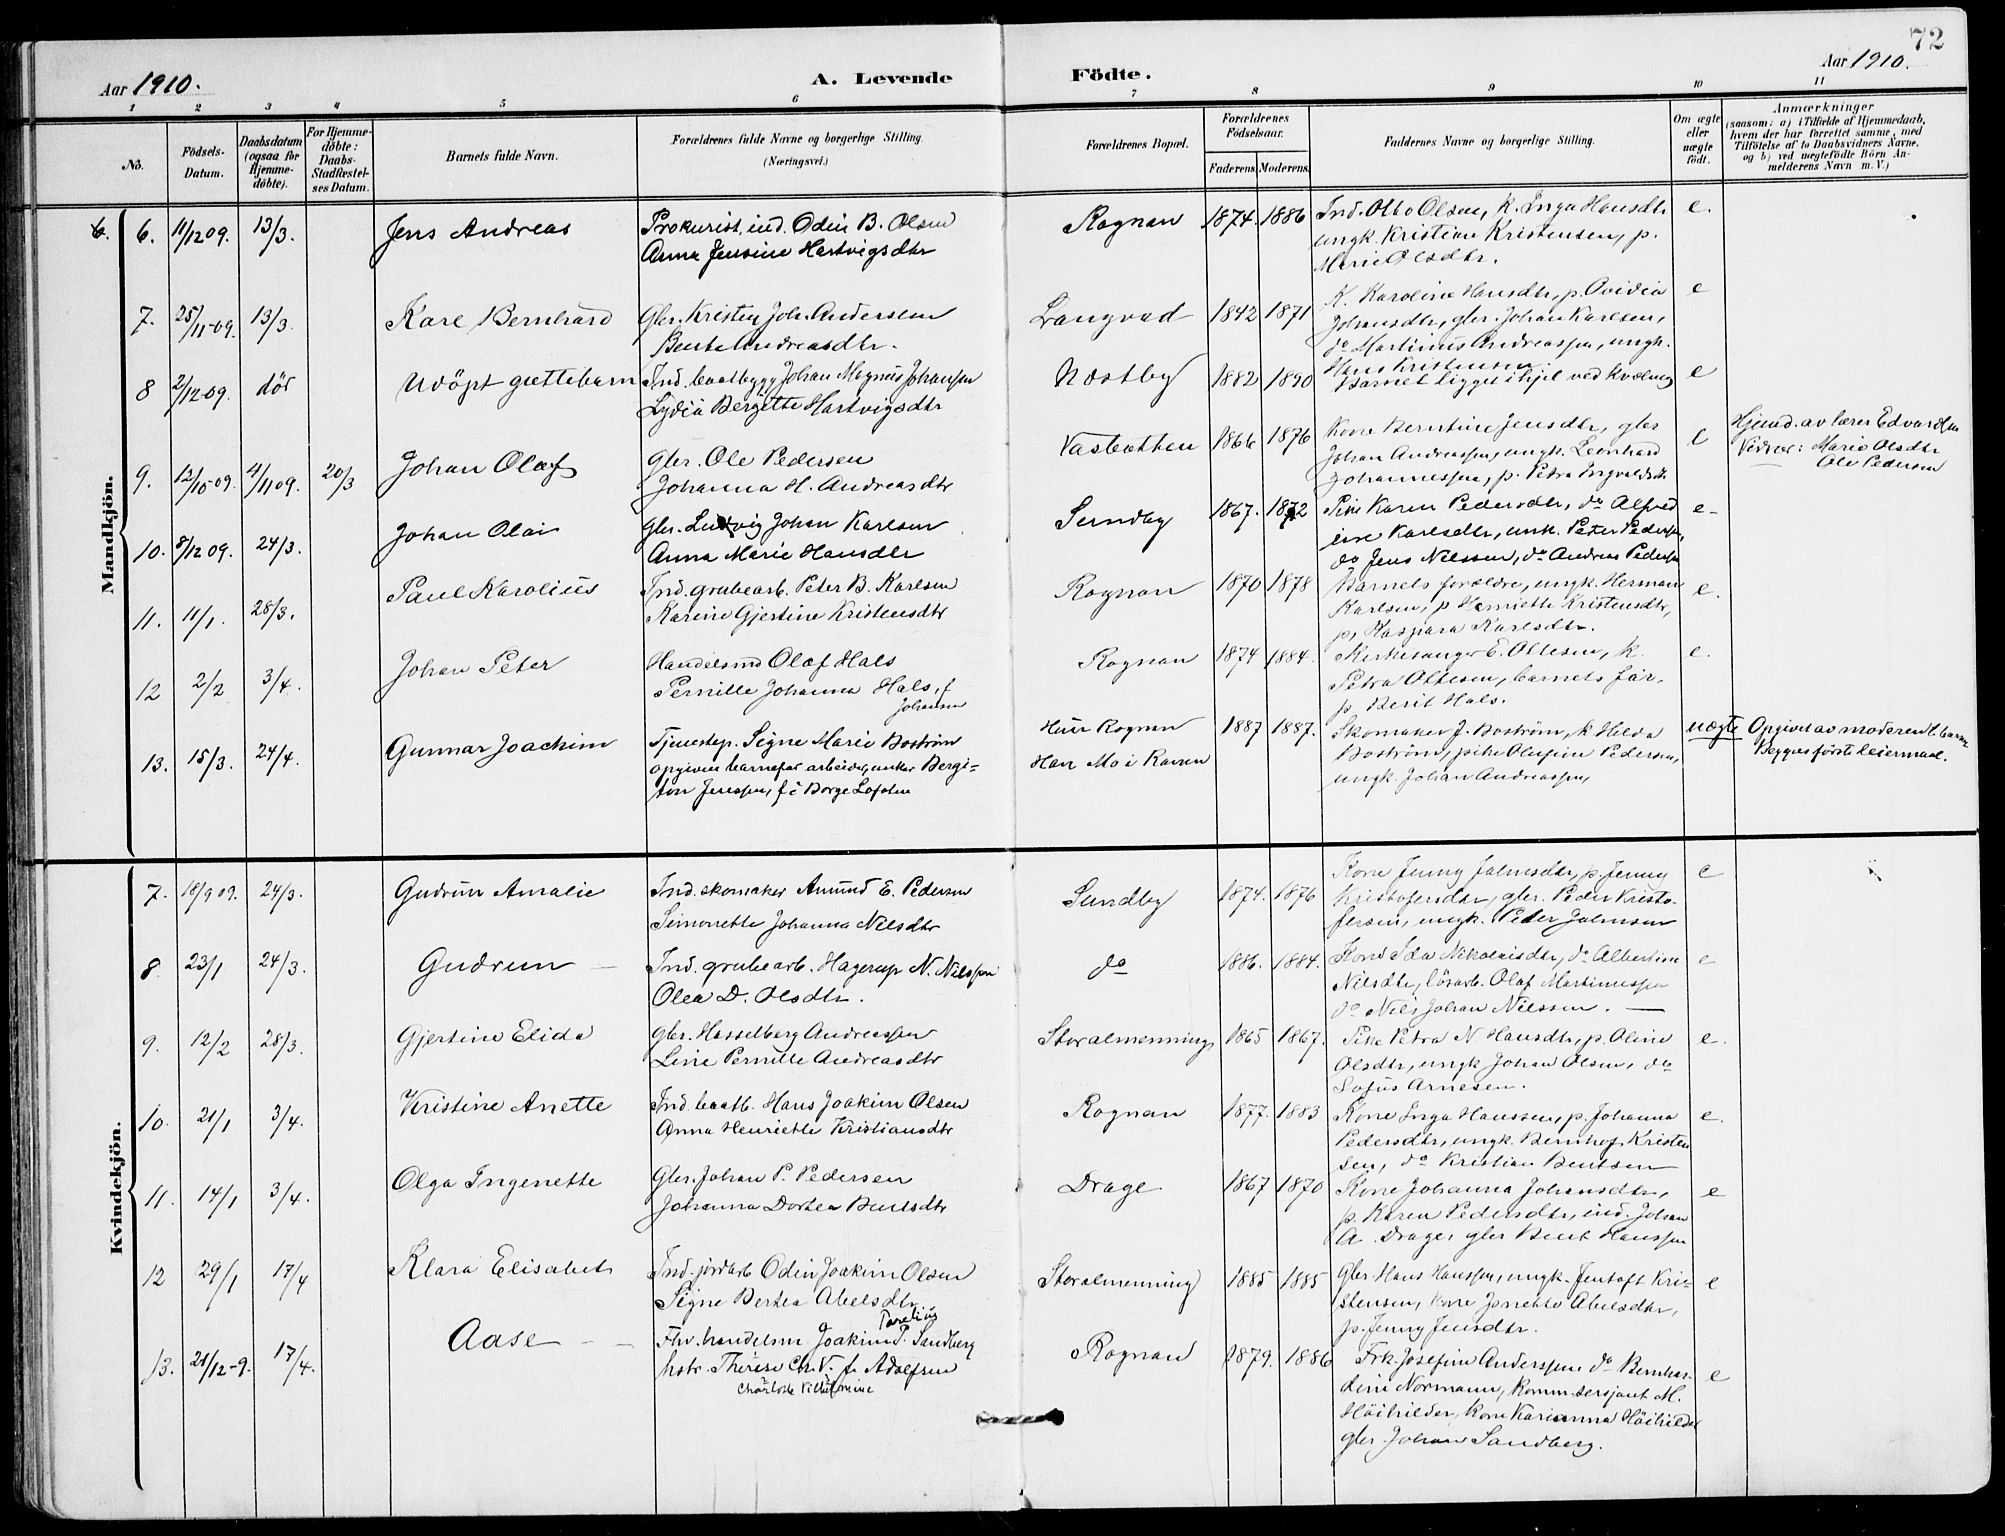 72
Aar 1910.
A. Levende
Födte.
Aar 1910.
1 2 3 4 5 6 7 8 9 10 11
No. Födsels-Datum. Daabsdatum (ogsaa for Hjemme-döbte). For Hjemme-döbte: Daabs-Stadfæstel-ses Datum. Barnets fulde Navn. Forældrenes fulde Navne og borgerlige Stilling. (Næringsvei.) Forældrenes Bopæl. Forældrenes Födselsaar. Faderens. Moderens. Faddernes Navne og borgerlige Stilling. Om ægte eller uægte födt. Anmærkninger (saasom: a) i Tilfælde af Hjemmedaab, hvem der har forrettet samme, med Tilföielse af to Daabsvidners Navne, og b) ved uægtefödte Börn An-melderens Navn m. V.)
Mandkjön.
6. 6. 11/12 09. 13/3. Jens Andreas Prokurist, ind. Odin B. Olsen Rognan 1874. 1886 Ind. Otto Olsen, k. Inga Hansdtr e.
Anna Jensine Hartvigsdtr ungk. Kristian Kristensen, p.
Marie Olsdtr.
7. 25/11-09. 13/3. Kare Bernhard Gbr. Kristen Joh. Andersen Langvad 1842 1871 K. Karoline Hansdtr, p. Ovidia e
Bente Andreasdtr. Johansdtr, gbr. Johan Karlsen,
do Martinus Andreassen, ungk.
Hans Kristensen
8 2/12-09. dör Udöpt guttebarn Ind. baatbygg Johan Magnus Johansen Næstby 1882 1890 Barnet ligget ihjel ved kvælning e
Lydia Bergitte Hartvigsdtr
9. 12/10-09. 4/11 09. 20/3 Johan Olaf Gbr. Ole Pedersen Vasbotten 1866 1876 Kone Berntine Jensdtr, gbr e Hjemd. av lærer Edvardsen
Johanna H. Andreasdtr Johan Andreassen, ungk. Leonhard Vidner: Marie Olsdtr
Johannessen, p. Petra Ingvaldsdtr Ole Pedersen
10. 8/12 09. 24/3. Johan Olai Gbr. Ludvig Johan Karlsen Sundby 1867. 1872 Pike Karen Pedersdtr, do Alfred e-
Anna Marie Hansdtr ine Karlsdtr, unk. Peter Pedersen,
do Jens Nilssen, do Andreas Pedersen
11. 11/1. 28/3. Paul Karolius Ind. grubearb. Peter B. Karlsen Rognan 1870 1878 Barnets forældre, ungk. Herman e.
Karine Gjertine Kristensdtr Karlsen, p Henriette Kristensdtr,
p, Kaspara Karlsdtr.
12 2/2 3/4. Johan Peter Handelsmd Olaf Hals Rognan 1874 1884. Kirkesanger E. Ottesen, k. e.
Pernille Johanna Hals, f Petra Ottesen, barnets far,
Johansen p. Berit Hals.
13. 15/3. 24/4. Gunnar Joachim Tjenestep. Signe Marie Boström Hun Rognan 1887 1887. Skomaker J. Boström, k. Hilda uægte Opgivet av moderen til barnet
opgiven barnefar arbeider, unkar Bergi- Han Mo i Ranen Boström, pike Olufine Pedersen, Begges först leiermaal.
ton Jenssen, f. i Borge Lofoten ungk. Johan Andreassen,
Kvindekjön.
7. 18/9 09. 24/3. Gudrun Amalie Ind. skomaker Amund E. Pedersen Sundby 1874. 1876 Kone Jenny Johnsdtr, p. Jenny e
Simonette Johanna Nilsdtr Kristofersdtr, gbr. Peder Kristo-
fersen, ungk. Peder Johnsen
8. 23/1 24/3. Gudrun — Ind. grubearb. Hagerup N. Nilssen do 1886. 1884. Kone Ida Nikolaisdtr, do Albertine e
Olea D. Olsdtr. Nilsdtr, lösarb. Olaf Martinussen
do Nils Johan Nilssen. —
9. 12/2 28/3. Gjertine Elida Gbr. Hasselberg Andreassen Storalmenning 1865 1867. Pike Petra N. Hansdtr, p. Oline e.
Line Pernille Andreasdtr Olsdtr, ungk Johan Olsen, do
Sofus Arnesen.
10. 21/1 3/4. Kristine Anette Ind. baatb. Hans Joakim Olsen Rognan 1877. 1883 Kone Inga Hanssen, p. Johanna e.
Anna Henriette Kristiansdtr Pedersdtr, ungk. Bernhof Kristen
sen, do Kristian Bentsen
11. 14/1 3/4. Olga Ingenette Gbr. Johan P. Pedersen Drage 1867 1870 Kone Johanna Johansdtr, e
Johanna Dortea Bentsdtr p. Karen Pedersdtr, ind. Johan
A. Drage, gbr Bent Hanssen
12 29/1 17/4 Klara Elisabet Ind. jordarb Odin Joakim Olsen Storalmenning 1885 1885 Gbr. Hans Hanssen, ungk. Jentoft Kri- e
Signe Bertea Abelsdtr stensen, kone Jonette Abelsdtr,
p. Jenny Jensdtr.
Parelius
13. 21/12-9. 17/4. Aase — Fhv. handelsm. Joakim P. Sandberg Rognan 1879. 1886 Frk. Josefine Anderssen do Bernhar- e
hstr. Therese Ch. V. f. Adolfsen dine Normann, Komm. sersjant M.
Charlotte Vilhelmine Höihilder, kone Karianna Höihilder
gbr. Johan Sandberg.